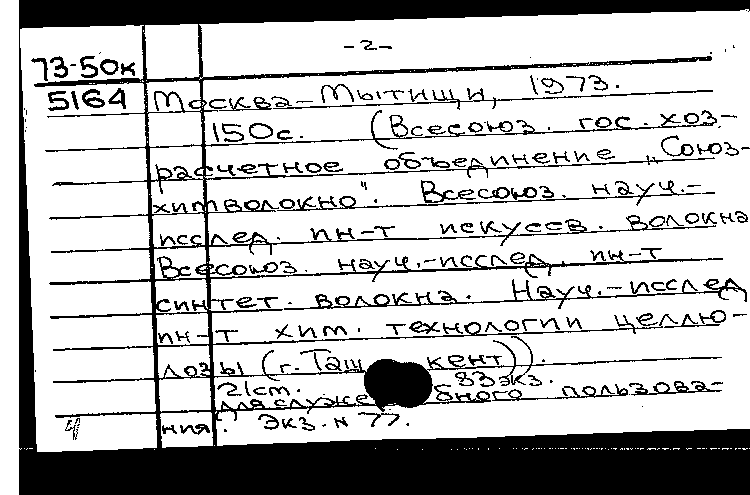 -2-
73-50к
5164 Москва-Мытищи, 1973.
150с. (Всесоюз. гос. хоз-
расчетное объединение „Союз-
химволокно". Всесоюз. науч.-
исслед. ин-т искусств. волокна
Всесоюз. науч.-исслед. ин-т
синтет. волокна. Науч.-исслед
ин-т хим. технологии целлю-
лозы (г. Ташкент)).
21см. 83экз.
для служебного пользова-
4 ния". Экз. № 77.